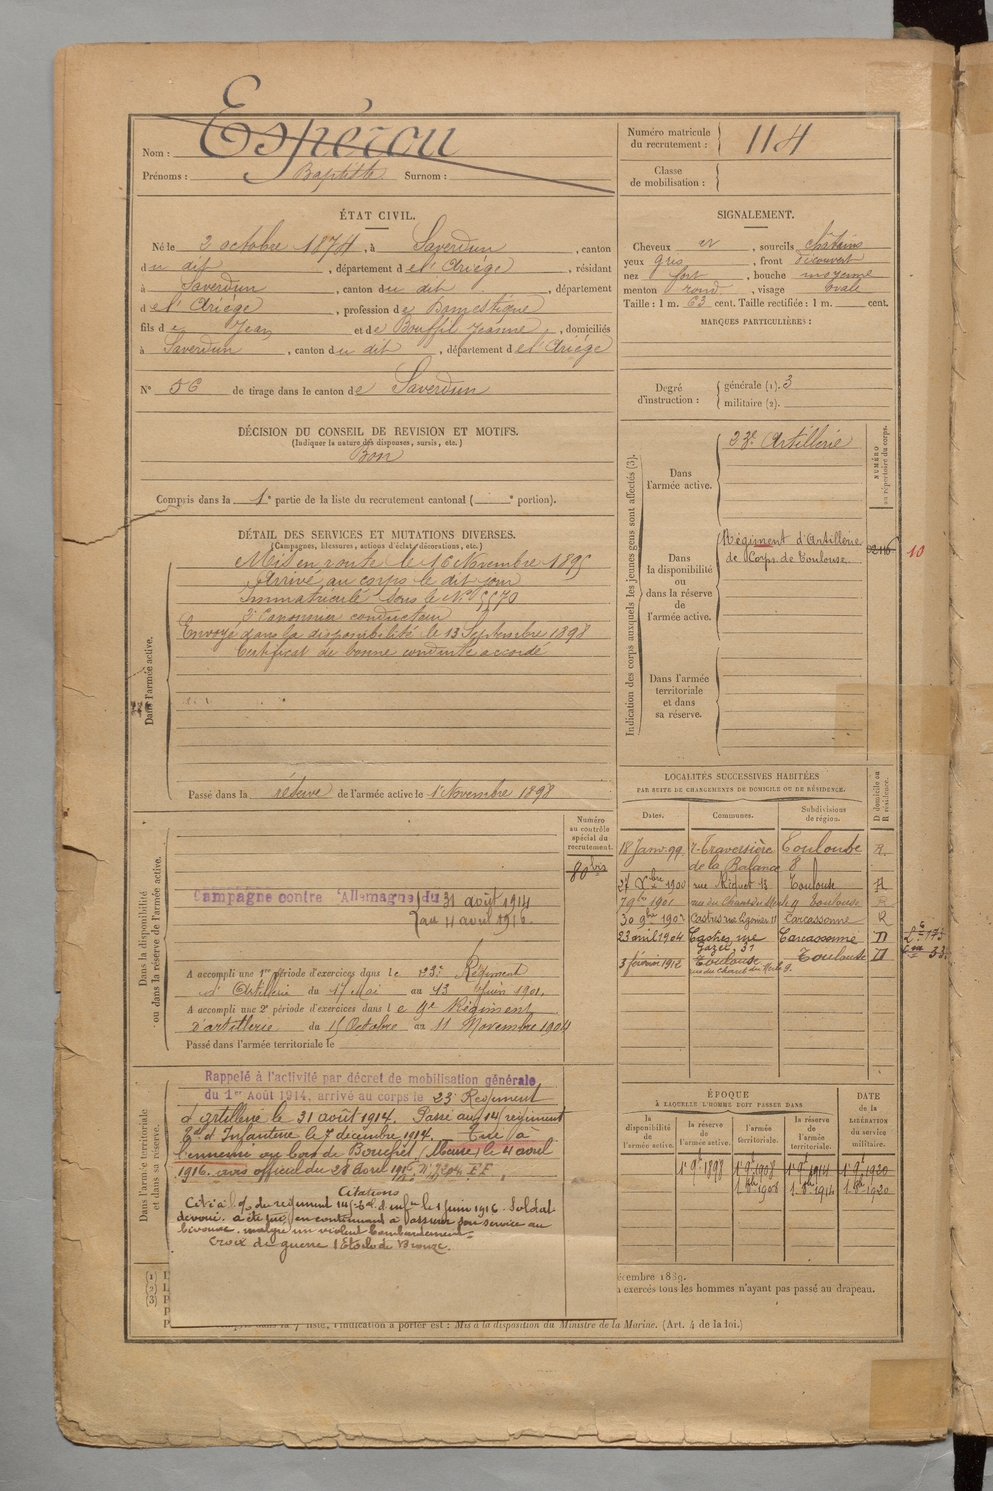 Nom : Espérou
Prénoms : Baptiste Surnom :
Numéro matricule du recrutement : 114
Classe de mobilisation :
ÉTAT CIVIL.
Né le 2 octobre 1874, à Saverdun, canton
du dit, département de l'Ariége, résidant
à Saverdun, canton du dit, département
de l'Ariége, profession de Domestique
fils de Jean et de Bouffil Jeanne, domiciliés
à Saverdun, canton du dit, département de l'Ariége
N° 56 de tirage dans le canton de Saverdun
DÉCISION DU CONSEIL DE REVISION ET MOTIFS.
(Indiquer la nature des dispenses, sursis, etc.)
Bon
Compris dans la 1e partie de la liste du recrutement cantonal ( e portion).
SIGNALEMENT.
Cheveux et, sourcils châtains
yeux gris, front découvert
nez fort, bouche moyenne
menton rond, visage Ovale
Taille : 1 m. 63 cent. Taille rectifiée : 1 m. cent.
MARQUES PARTICULIÈRES :
Degré d'instruction :
générale (1). 3
militaire (2).
DÉTAIL DES SERVICES ET MUTATIONS DIVERSES.
(Campagnes, blessures, actions d'éclat, décorations, etc.)
Dans l'armée active.
Mis en route le 16 Novembre 1895
Arrivé au corps le dit jour
Immatriculé sous le N° 5570
2e Canonnier conducteur
Envoyé dans la disponibilité le 13 Septembre 1898
Certificat de bonne conduite accordé
Passé dans la réserve de l'armée active le 1 Novembre 1898
Indication des corps auxquels les jeunes gens sont affectés (3).
NUMÉRO au répertoire du corps.
Dans l'armée active.
23e Artillerie
Dans la disponibilité ou dans la réserve de l'armée active.
Régiment d'Artillerie
de Corps de Toulouse.
10
Dans l'armée territoriale et dans sa réserve.
LOCALITÉS SUCCESSIVES HABITÉES
PAR SUITE DE CHANGEMENTS DE DOMICILE OU DE RÉSIDENCE.
Dates. Communes. Subdivisions de région. D domicile ou R résidence.
18 Janv. 99 r. Traversière Toulouse R.
de la Balance 8
27 Xbre 1900 rue Riquet 18 Toulouse R
7 9bre 1901 rue du Chant du Merle 9 Toulouse R
30 9bre 1903 Castres Carcassonne R
23 avril 1904 Castres, rue Carcassonne D
3 février 1912 Toulouse Toulouse D
rue du Chant du Merle 9.
Dans la disponibilité ou dans la réserve de l'armée active.
Numéro au contrôle spécial du recrutement.
80 bis
Campagne contre l'Allemagne du 31 août 1914
au 4 avril 1916.
A accompli une 1re période d'exercices dans le 23e Régiment
d'Artillerie du 17 Mai au 13 Juin 1901.
A accompli une 2e période d'exercices dans le 9e Régiment
d'artillerie du 15 Octobre au 11 Novembre 1904
Passé dans l'armée territoriale le
Dans l'armée territoriale et dans sa réserve.
Rappelé à l'activité par décret de mobilisation générale
du 1er Août 1914, arrivé au corps le 23e Régiment
d'artillerie le 31 août 1914. Passé au 14 régiment
d'Infanterie le 7 décembre 1914. Tué à
l'ennemi au bois de Bouchet (Meuse) le 4 avril
1916. avis officiel du 28 avril 1916
Citations
Cité à l'o/ du régiment 14e tal d'infie le 1 juin 1916. Soldat
dévoué. a été tué en continuant à assurer son service au
bivouac, malgré un violent bombardement.
Croix de guerre Étoile de Bronze.
ÉPOQUE
À LAQUELLE L'HOMME DOIT PASSER DANS
la disponibilité de l'armée active. la réserve de l'armée active. l'armée territoriale. la réserve de l'armée territoriale. DATE de la LIBÉRATION du service militaire.
1er 9bre 1898 1er 9bre 1908 1er 9bre 1914 1er 9bre 1920
1908 1914 1920
(1)
(2)
(3)
écembre 1889.
exercés tous les hommes n'ayant pas passé au drapeau.
liste, l'indication à porter est : Mis à la disposition du Ministre de la Marine. (Art. 4 de la loi.)